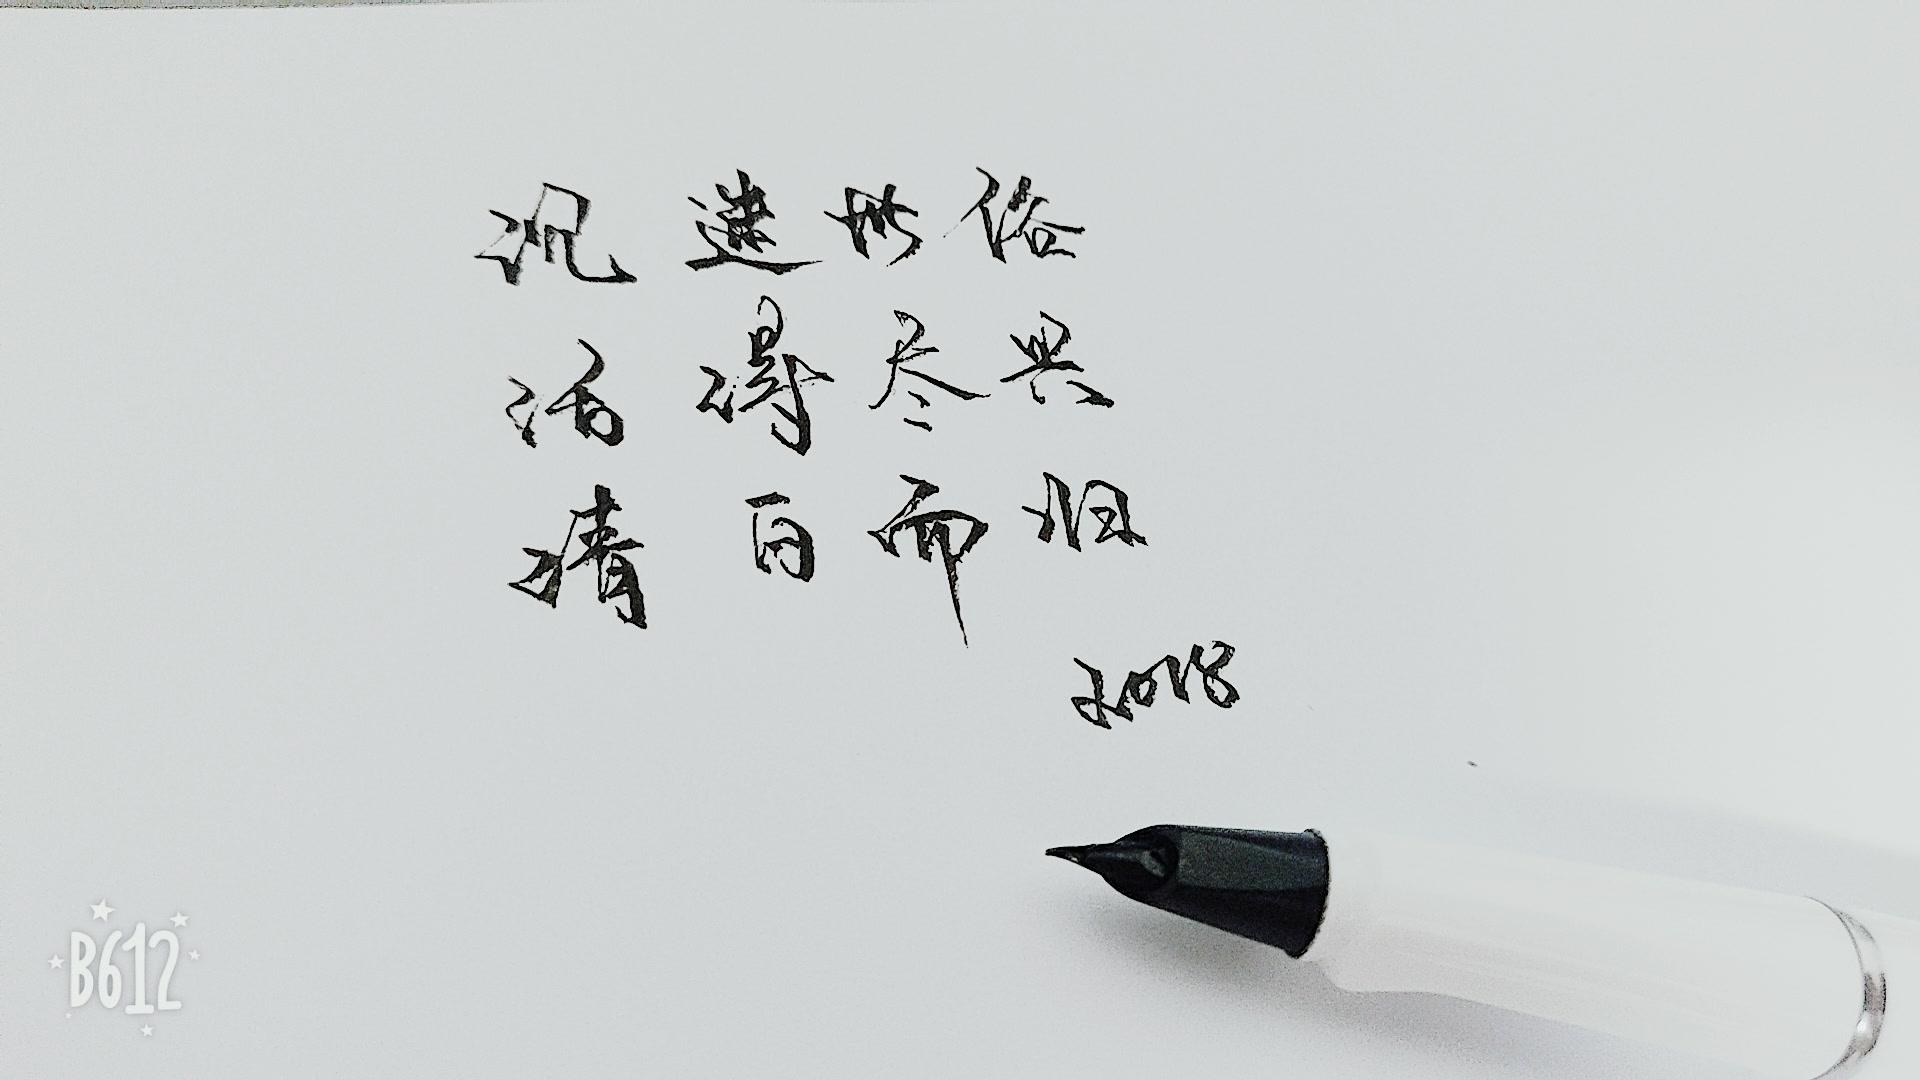 沉迷世俗
活得尽兴
清白而归
2018
B612